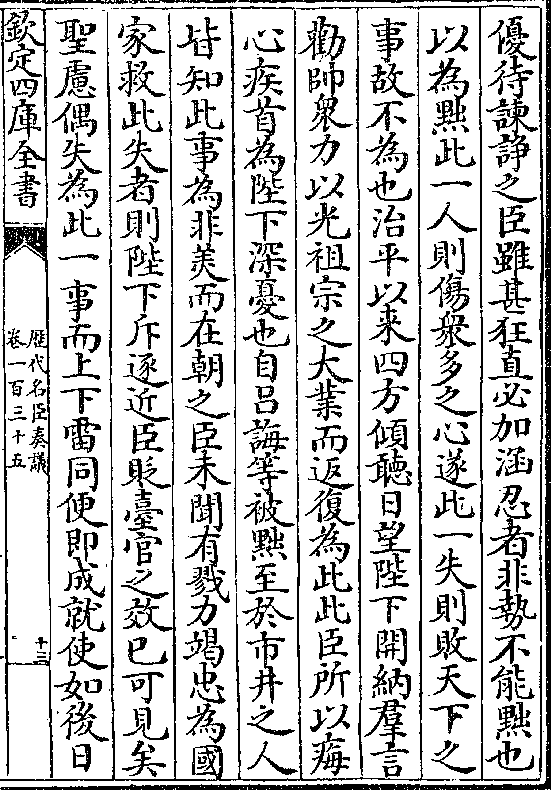 優待諫諍之臣雖甚狂直必加涵忍者非勢不能黜也
以為黜此一人則傷衆多之心遂此一失則敗天下之
事故不為也治平以来四方傾聽日望陛下開納羣言
勸帥衆力以光祖宗之大業而返復為此此臣所以痗
心疾首為陛下深憂也自吕誨等被黜至於市井之人
皆知此事為非美而在朝之臣未聞有戮力竭忠為國
家救此失者則陛下斥逐近臣貶臺官之效已可見矣
聖慮偶失為此一事而上下雷同便即成就使如後日
欽定四庫全書
歴代名臣奏議
卷一百三十五
十三